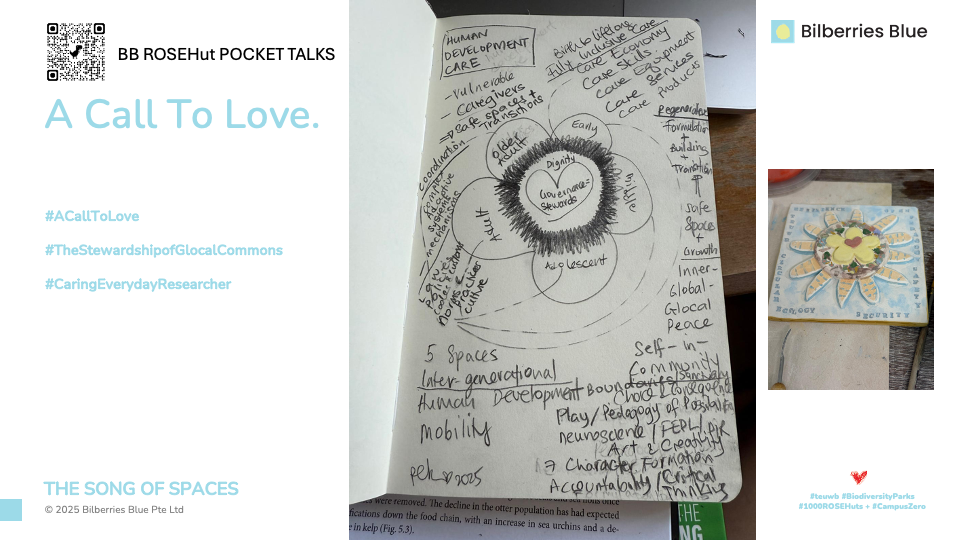 BB ROSEHut POCKET TALKS
A Call To Love.
#ACallToLove
#TheStewardshipofGlocalCommons
#CaringEverydayResearcher
THE SONG OF SPACES
© 2025 Bilberries Blue Pte Ltd
HUMAN
DEVELOPMENT
CARE
- Vulnerable
- Caregivers
=> safe spaces +
Transitions
Birth to lifelong
Fully Inclusive care
Care Economy
Care Skills
Care Equipment
Care Services
Care Products
Coordination
Complex
Adaptive
Systems
mechanisms
Law
Policies
Codes & customs
Norms &
Practices
Culture
Older
Adult
Early
Dignity
Governance =
Stewards
Adult
Adolescent
Regenerative
Formulation
+
Building
+
Transition
Safe
Space
+
Growth
Inner-
Global-
Glocal
Peace
Self-in-
Community
5 Spaces
Inter-generational
Human Development Boundaries/Sanctuary
Choice & Consequence
Mobility
Play/Pedagogy of
neuroscience/FEPL/PJR
Art & Creativity
7 Character Formation
Accountability/Critical
Thinking
pek 2025
were removed. The decline in the otter population has had expected
fications down the food chain, with an increase in sea urchins and a de-
e in kelp (Fig. 5.3).
THE
NG
Bilberries Blue
ECOLOGY
SECURITY
#tauwb #BiodiversityParks
#1000ROSEHuts + #CampusZero